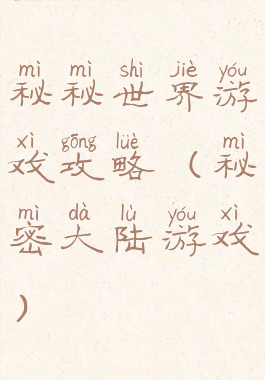 mì mì shì jiè yóu
秘秘世界游
xì gōng lüè mì
戏攻略（秘
mì dà lù yóu xì
密大陆游戏
）